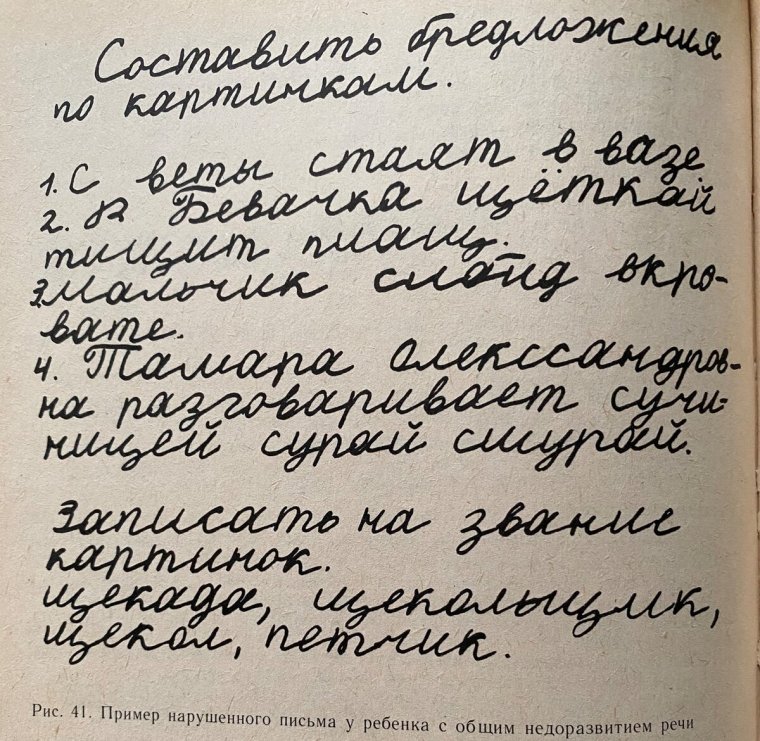 Составить бредложения
по картинкам.
1. С веты стаят в вазе
2. В Бевачка щёткай
тищит плащ.
3. Мальчик слапид вкро-
вате.
4. Тамара Олекссандров-
на разговаривает сучи-
ницей сурай сшурай.
Записать на звание
картинок.
щекада, щекольщик,
щекол, петчик.
Рис. 41. Пример нарушенного письма у ребенка с общим недоразвитием речи